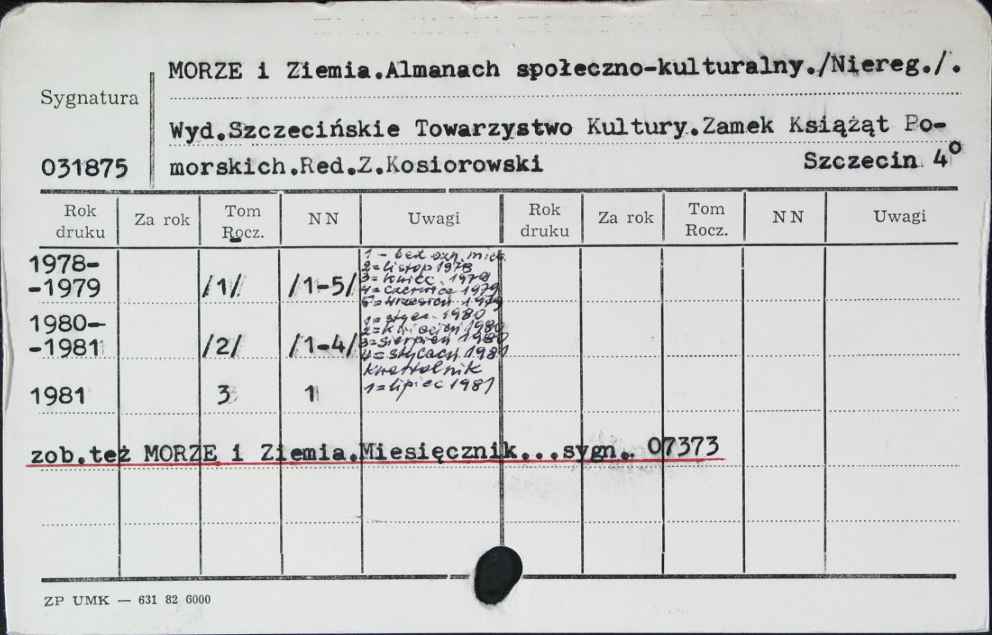 MORZE i Ziemia.Almanach społeczno-kulturalny./Niereg./.
Sygnatura
Wyd.Szczecińskie Towarzystwo Kultury.Zamek Książąt Po-
031875 morskich.Red.Z.Kosiorowski Szczecin 4°
Rok druku Za rok Tom Rocz. NN Uwagi Rok druku Za rok Tom Rocz. NN Uwagi
1978-
-1979 /1/ /1-5/
1 - bez ozn. mies.
2=listop 1978
3=kwiec. 1979
4=czerwiec 1979
5=wrzesień 1979
1980-
-1981 /2/ /1-4/
1980
2=kwiecień 1980
3=sierpień 1980
4=styczeń 1981
1981 3 1
kwartalnik
1=lipiec 1981
zob.też MORZE i Ziemia.Miesięcznik...sygn. 07373
ZP UMK — 631 82 6000